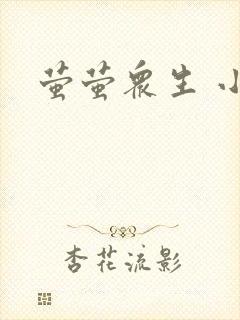 萤萤众生 小
杏花流影